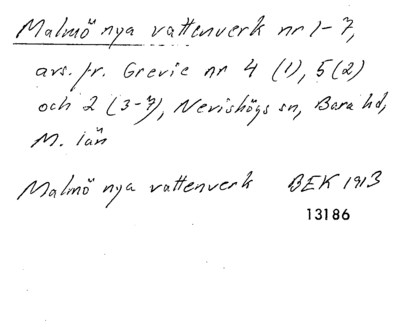 Malmö nya vattenverk nr 1-7,
avs. fr. Grevie nr 4 (1), 5 (2)
och 2 (3-7), Nevishögs sn, Bara hd,
M. län
Malmö nya vattenverk BEK 1913
13186